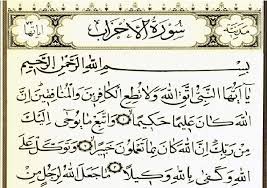 مدنية سورة الأحزاب آياتها ٧٣
بسم الله الرحمن الرحيم
يا أيها النبي اتق الله ولا تطع الكافرين والمنافقين إن
الله كان عليما حكيما ۝ واتبع ما يوحى إليك
من ربك إن الله كان بما تعملون خبيرا ۝ وتوكل على
الله وكفى بالله وكيلا ۝ ما جعل الله لرجل من